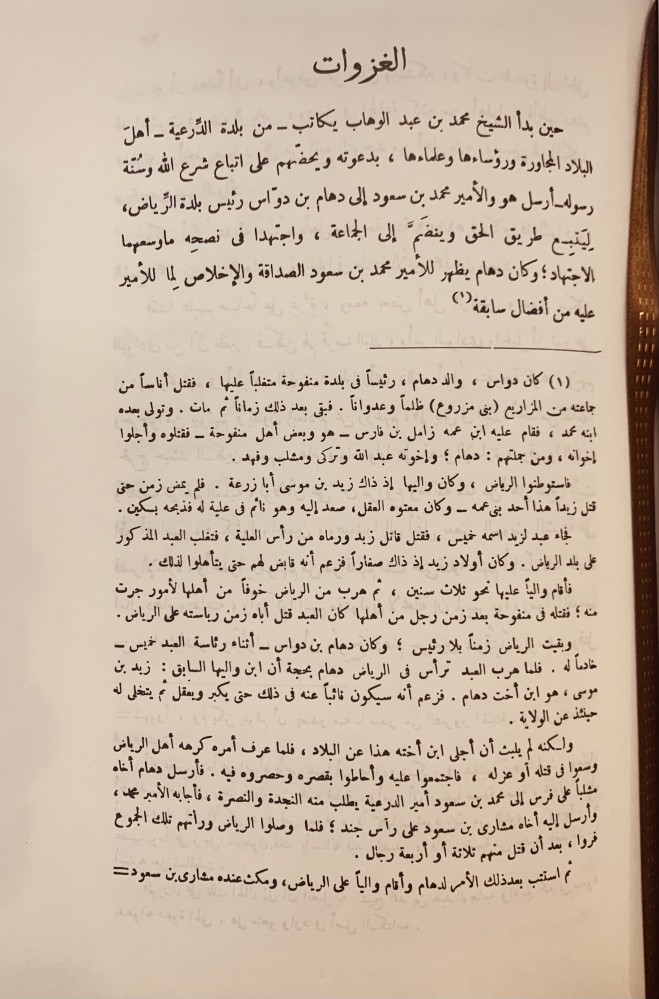 الغزوات
حين بدأ الشيخ محمد بن عبد الوهاب يكاتب ــ من بلدة الدِّرعية ــ أهلَ
البلاد المجاورة ورؤساءها وعلماءها ، بدعوته ويحضّهم على اتباع شرع الله وسُنّة
رسوله ــ أرسل هو والأمير محمد بن سعود إلى دهام بن دوّاس رئيس بلدة الرِّياض،
لِيَتبِع طريق الحق وينضَمَّ إلى الجماعة ، واجتهدا فى نصحِه ماوسعهما
الاجتهاد ؛ وكان دهام يظهر للأمير محمد بن سعود الصداقة والإخلاص لِما للأمير
عليه من أفضال سابقة (١)
(١) كان دواس ، والد دهام ، رئيساً فى بلدة منفوحة متغلباً عليها ، فقتل أناساً من
جماعته من المزاريع (بنى مزروع) ظلماً وعدواناً . فبقى بعد ذلك زماناً ثم مات . وتولى بعده
ابنه محمد ، فقام عليه ابن عمه زامل بن فارس ــ هو وبعض أهل منفوحة ــ فقتلوه وأجلوا
إخوانه ، ومن جملتهم : دهام ؛ وإخوته عبد الله وتركى ومشلب وفهد .
فاستوطنوا الرياض ، وكان واليها إذ ذاك زيد بن موسى أبا زرعة . فلم يمض زمن حتى
قتل زيداً هذا أحد بنى عمه ــ وكان معتوه العقل، صعد إليه وهو نائم فى علية له فذبحه بسكين .
فجاء عبد لزيد اسمه خميس ، فقتل قاتل زيد ورماه من رأس العلية ، فتغلب العبد المذكور
على بلد الرياض . وكان أولاد زيد إذ ذاك صغاراً فزعم أنه قابض لهم حتى يتأهلوا لذلك .
فأقام والياً عليها نحو ثلاث سنين ، ثم هرب من الرياض خوفاً من أهلها لأمور جرت
منه ؛ فقتله فى منفوحة بعد زمن رجل من أهلها كان العبد قتل أباه زمن رياسته على الرياض .
وبقيت الرياض زمناً بلا رئيس ؛ وكان دهام بن دواس ــ أثناء رئاسة العبد خميس ــ
خادماً له . فلما هرب العبد ترأس فى الرياض دهام بحجة أن ابن واليها السابق : زيد بن
موسى ، هو ابن أخت دهام . فزعم أنه سيكون نائباً عنه فى ذلك حتى يكبر ويعقل ثم يتخلى له
حينئذ عن الولاية .
ولكنه لم يلبث أن أجلى ابن أخته هذا عن البلاد ، فلما عرف أمره كرهه أهل الرياض
وسعوا فى قتله أو عزله ، فاجتمعوا عليه وأحاطوا بقصره وحصروه فيه . فأرسل دهام أخاه
مشلباً على فرس إلى محمد بن سعود أمير الدرعية يطلب منه النجدة والنصرة ، فأجابه الأمير محمد ،
وأرسل إليه أخاه مشارى بن سعود على رأس جند ؛ فلما وصلوا الرياض ورأتهم تلك الجموع
فروا ، بعد أن قتل منهم ثلاثة أو أربعة رجال .
ثم استتب بعد ذلك الأمر لدهام وأقام والياً على الرياض، ومكث عنده مشارى بن سعود =